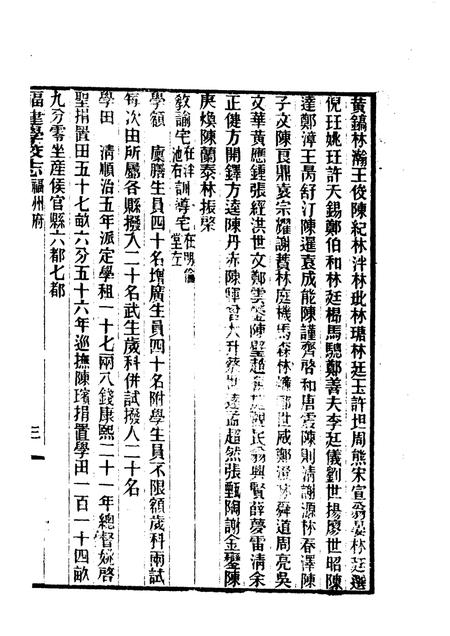 黃鎬林瀚王俊陳紀林泮林玭林瑭林廷玉許坦周熊宋宣翁晏林廷選
倪珏姚玨許天錫鄭伯和林廷㭿馬驄鄭善夫李廷儀劉世揚廖世昭陳
達鄭漳王昺舒汀陳暹袁成能陳謹齊啓和唐雲陳則清謝源林春澤陳
子文陳良鼎袁宗耀謝蕡林庭機馬森林 鄭世威鄭 林舜道周亮吳
文華黃應鍾張經洪世文鄭雲鎣陳壁趙 施觀民翁興賢薛夢雷清余
正健方開鐸方邁陳丹赤陳輝曾大升蔡世遠孟超然張甄陶謝金鑾陳
庚煥陳蘭泰林振棨
教諭宅在洋池右訓導宅在明倫堂左
學額 廩膳生員四十名增廣生員四十名附學生員不限額歲科兩試
每次由所屬各縣撥入二十名武生歲科併試撥入二十名
學田 清順治五年派定學租一十七兩八錢康熙二十一年總督姚啓
聖捐置田五十七畝六分五十六年巡撫陳璸捐置學田一百一十四畝
九分零坐産侯官縣六都七都
福建學校志福州府 三